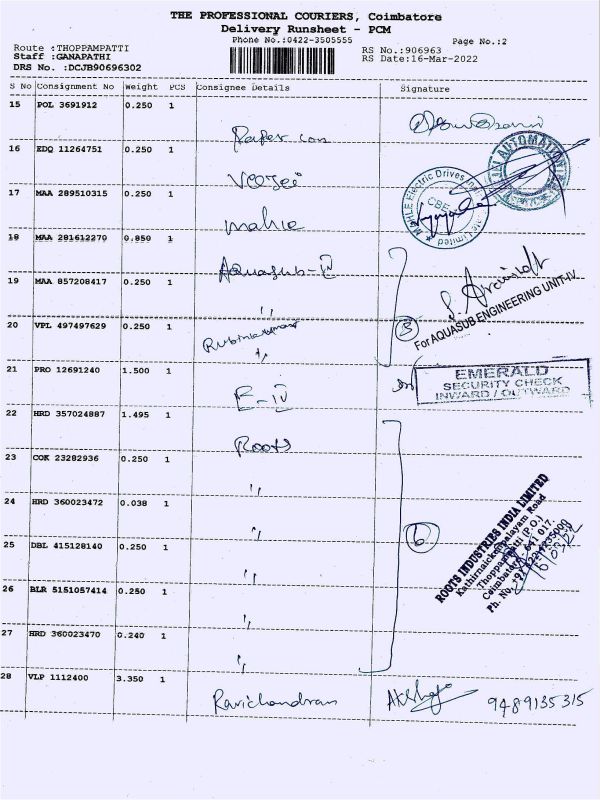 THE PROFESSIONAL COURIERS, Coimbatore
Delivery Runsheet - PCM
Phone No.:0422-3505555
Page No.:2
Route :THOPPAMPATTI
Staff :GANAPATHI
DRS No. :DCJB90696302
RS No.:906963
RS Date:16-Mar-2022
S No Consignment No Weight PCS Consignee Details Signature
15 POL 3691912 0.250 1
16 EDQ 11264751 0.250 1
17 MAA 289510315 0.250 1 Mahle
MAHLE Electric Drives Limited
CBE
18 MAA 281612270 0.850 1 Aquasub-IV
19 MAA 857208417 0.250 1 "
3
For AQUASUB ENGINEERING UNIT-IV
20 VPL 497497629 0.250 1
21 PRO 12691240 1.500 1 E-IV
EMERALD
SECURITY CHECK
INWARD / OUTWARD
22 HRD 357024887 1.495 1 Roots
23 COK 23282936 0.250 1 "
24 HRD 360023472 0.038 1 "
6
ROOTS INDUSTRIES INDIA LIMITED
Kathirnaickenpalayam Road
Thoppampatti (P.O.)
Coimbatore - 641 017.
Ph. No.
16/03/22
25 DBL 415128140 0.250 1 "
26 BLR 5151057414 0.250 1 "
27 HRD 360023470 0.240 1 "
28 VLP 1112400 3.350 1 Ravichandran 9489135315